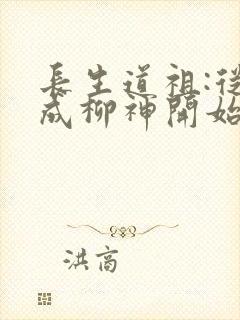 長生道祖:從
成柳神開始
洪高